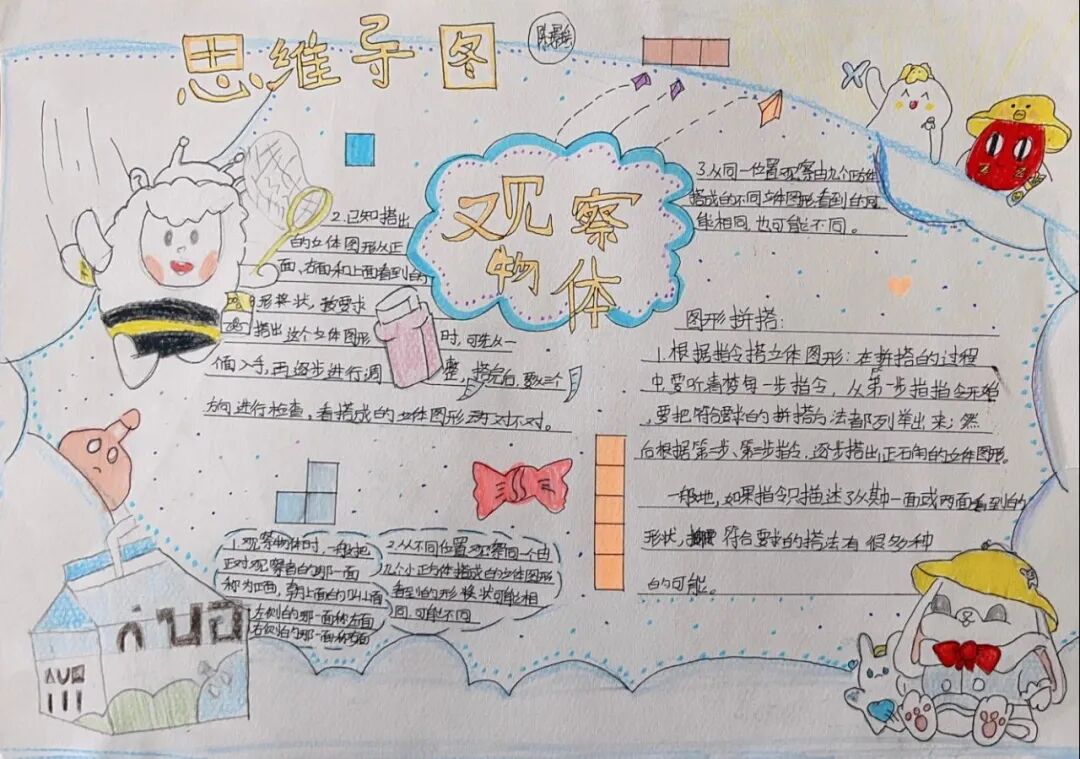 思维导图
观察
物体
2.已知搭出
的立体图形从正
面、右面和上面看到的
形状，按要求
搭出这个立体图形时，可先从一
面入手，再逐步进行调整，搭完后，要从三个
方向进行检查，看搭成的立体图形对不对。
3.从同一位置观察由几个
搭成的不同立体图形看到的
能相同，也可能不同。
图形拼搭：
1.根据指令搭立体图形：在拼搭的过程
中，要听清楚每一步指令，从第一步指指令开始
，要把符合要求的拼搭方法都列举出来；然
后根据第二步、第三步指令，逐步搭出正确的立体图形。
一般地，如果指令只描述了从其中一面或两面看到的
形状，符合要求的搭法有很多种
的可能。
1.观察物体时，一般把
正对观察者的那一面
称为正面，朝上面的叫上面
左侧的那一面称左面
右侧的那一面称右面
2.从不同位置观察同一个由
几个小正方体搭成的立体图形
看到的形状可能相
同，可能不同